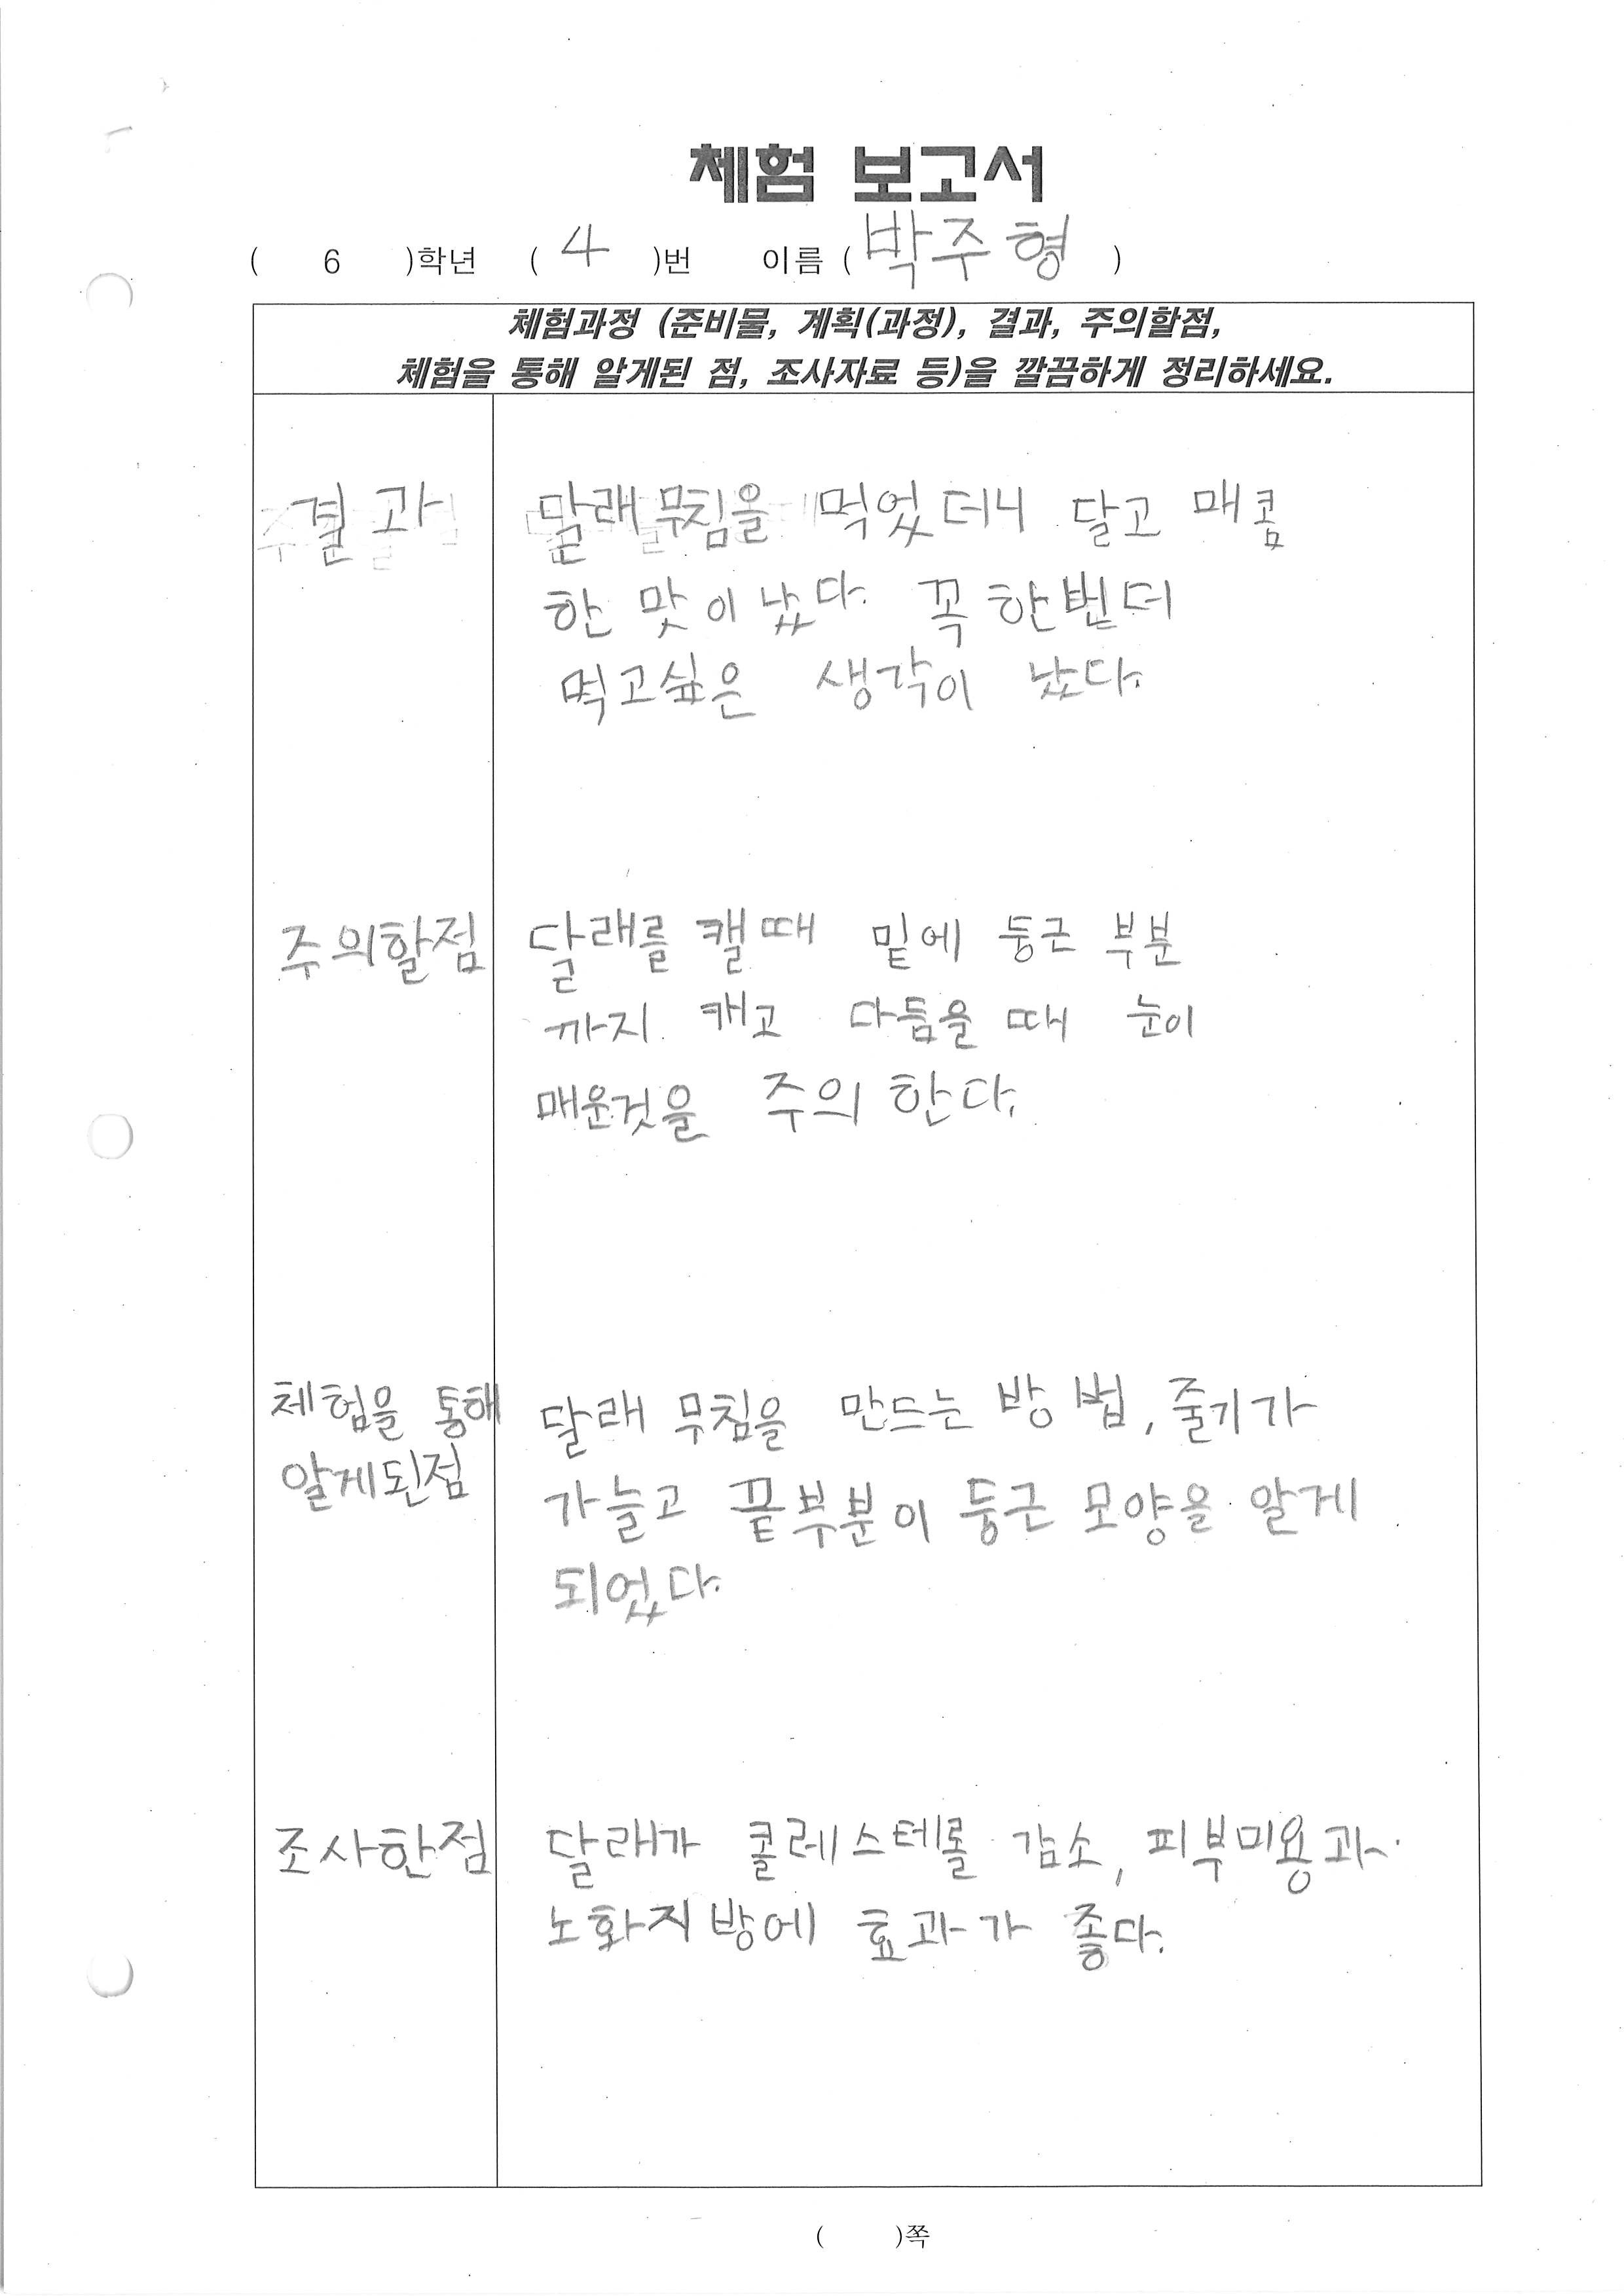 체험 보고서
( 6 )학년 ( 4 )번 이름 ( 박주형 )
체험과정 (준비물, 계획(과정), 결과, 주의할점,
체험을 통해 알게된 점, 조사자료 등)을 깔끔하게 정리하세요.
결과 달래무침을 먹었더니 달고 매콤
한 맛이 났다. 꼭 한번더
먹고싶은 생각이 났다.
주의할점 달래를 캘때 밑에 둥근 부분
까지 캐고 다듬을 때 눈이
매운것을 주의 한다.
체험을 통해 달래 무침을 만드는 방법, 줄기가
알게된점 가늘고 끝부분이 둥근 모양을 알게
되었다.
조사한점 달래가 콜레스테롤 감소, 피부미용과
노화지방에 효과가 좋다.
( )쪽